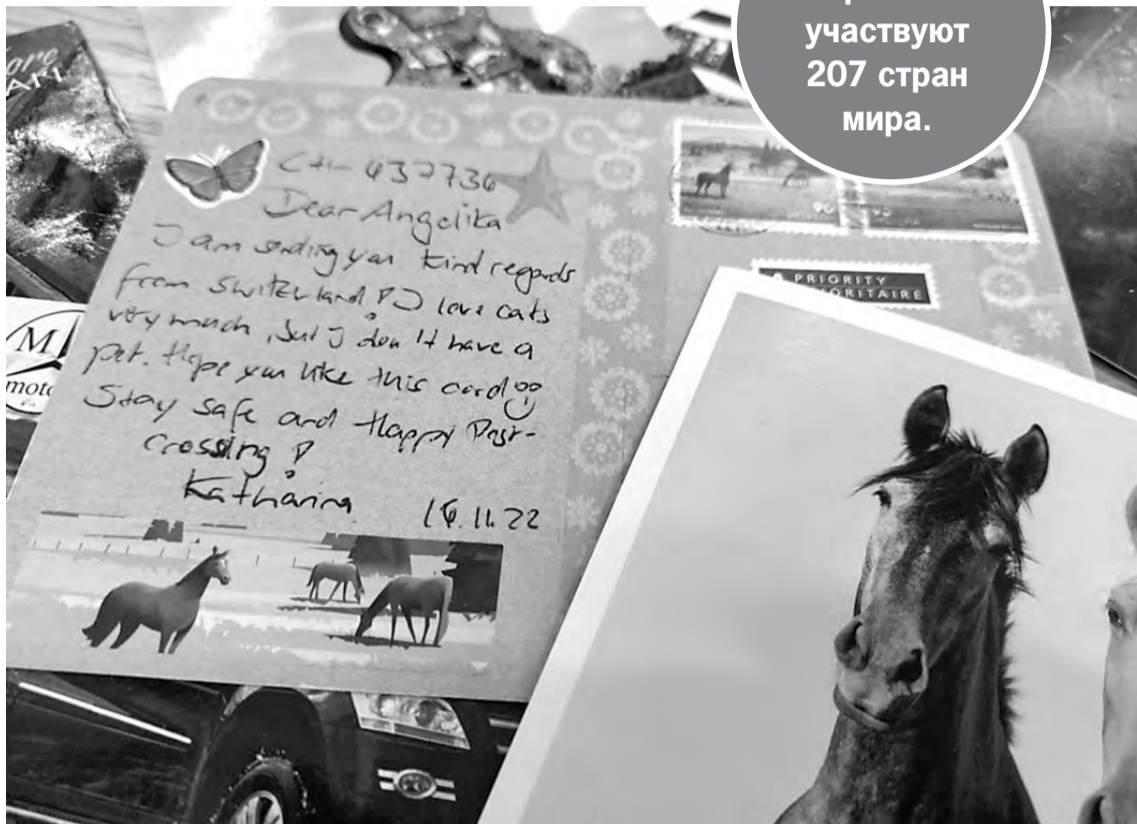 участвуют
207 стран
мира.
CH-437736
Dear Angelika
I am sending you kind regards
from Switzerland! I love cats
very much, but I don't have a
pet. Hope you like this card
Stay safe and Happy Post-
crossing!
Katharina 16.11.22
PRIORITY
PRIORITAIRE
M
moto